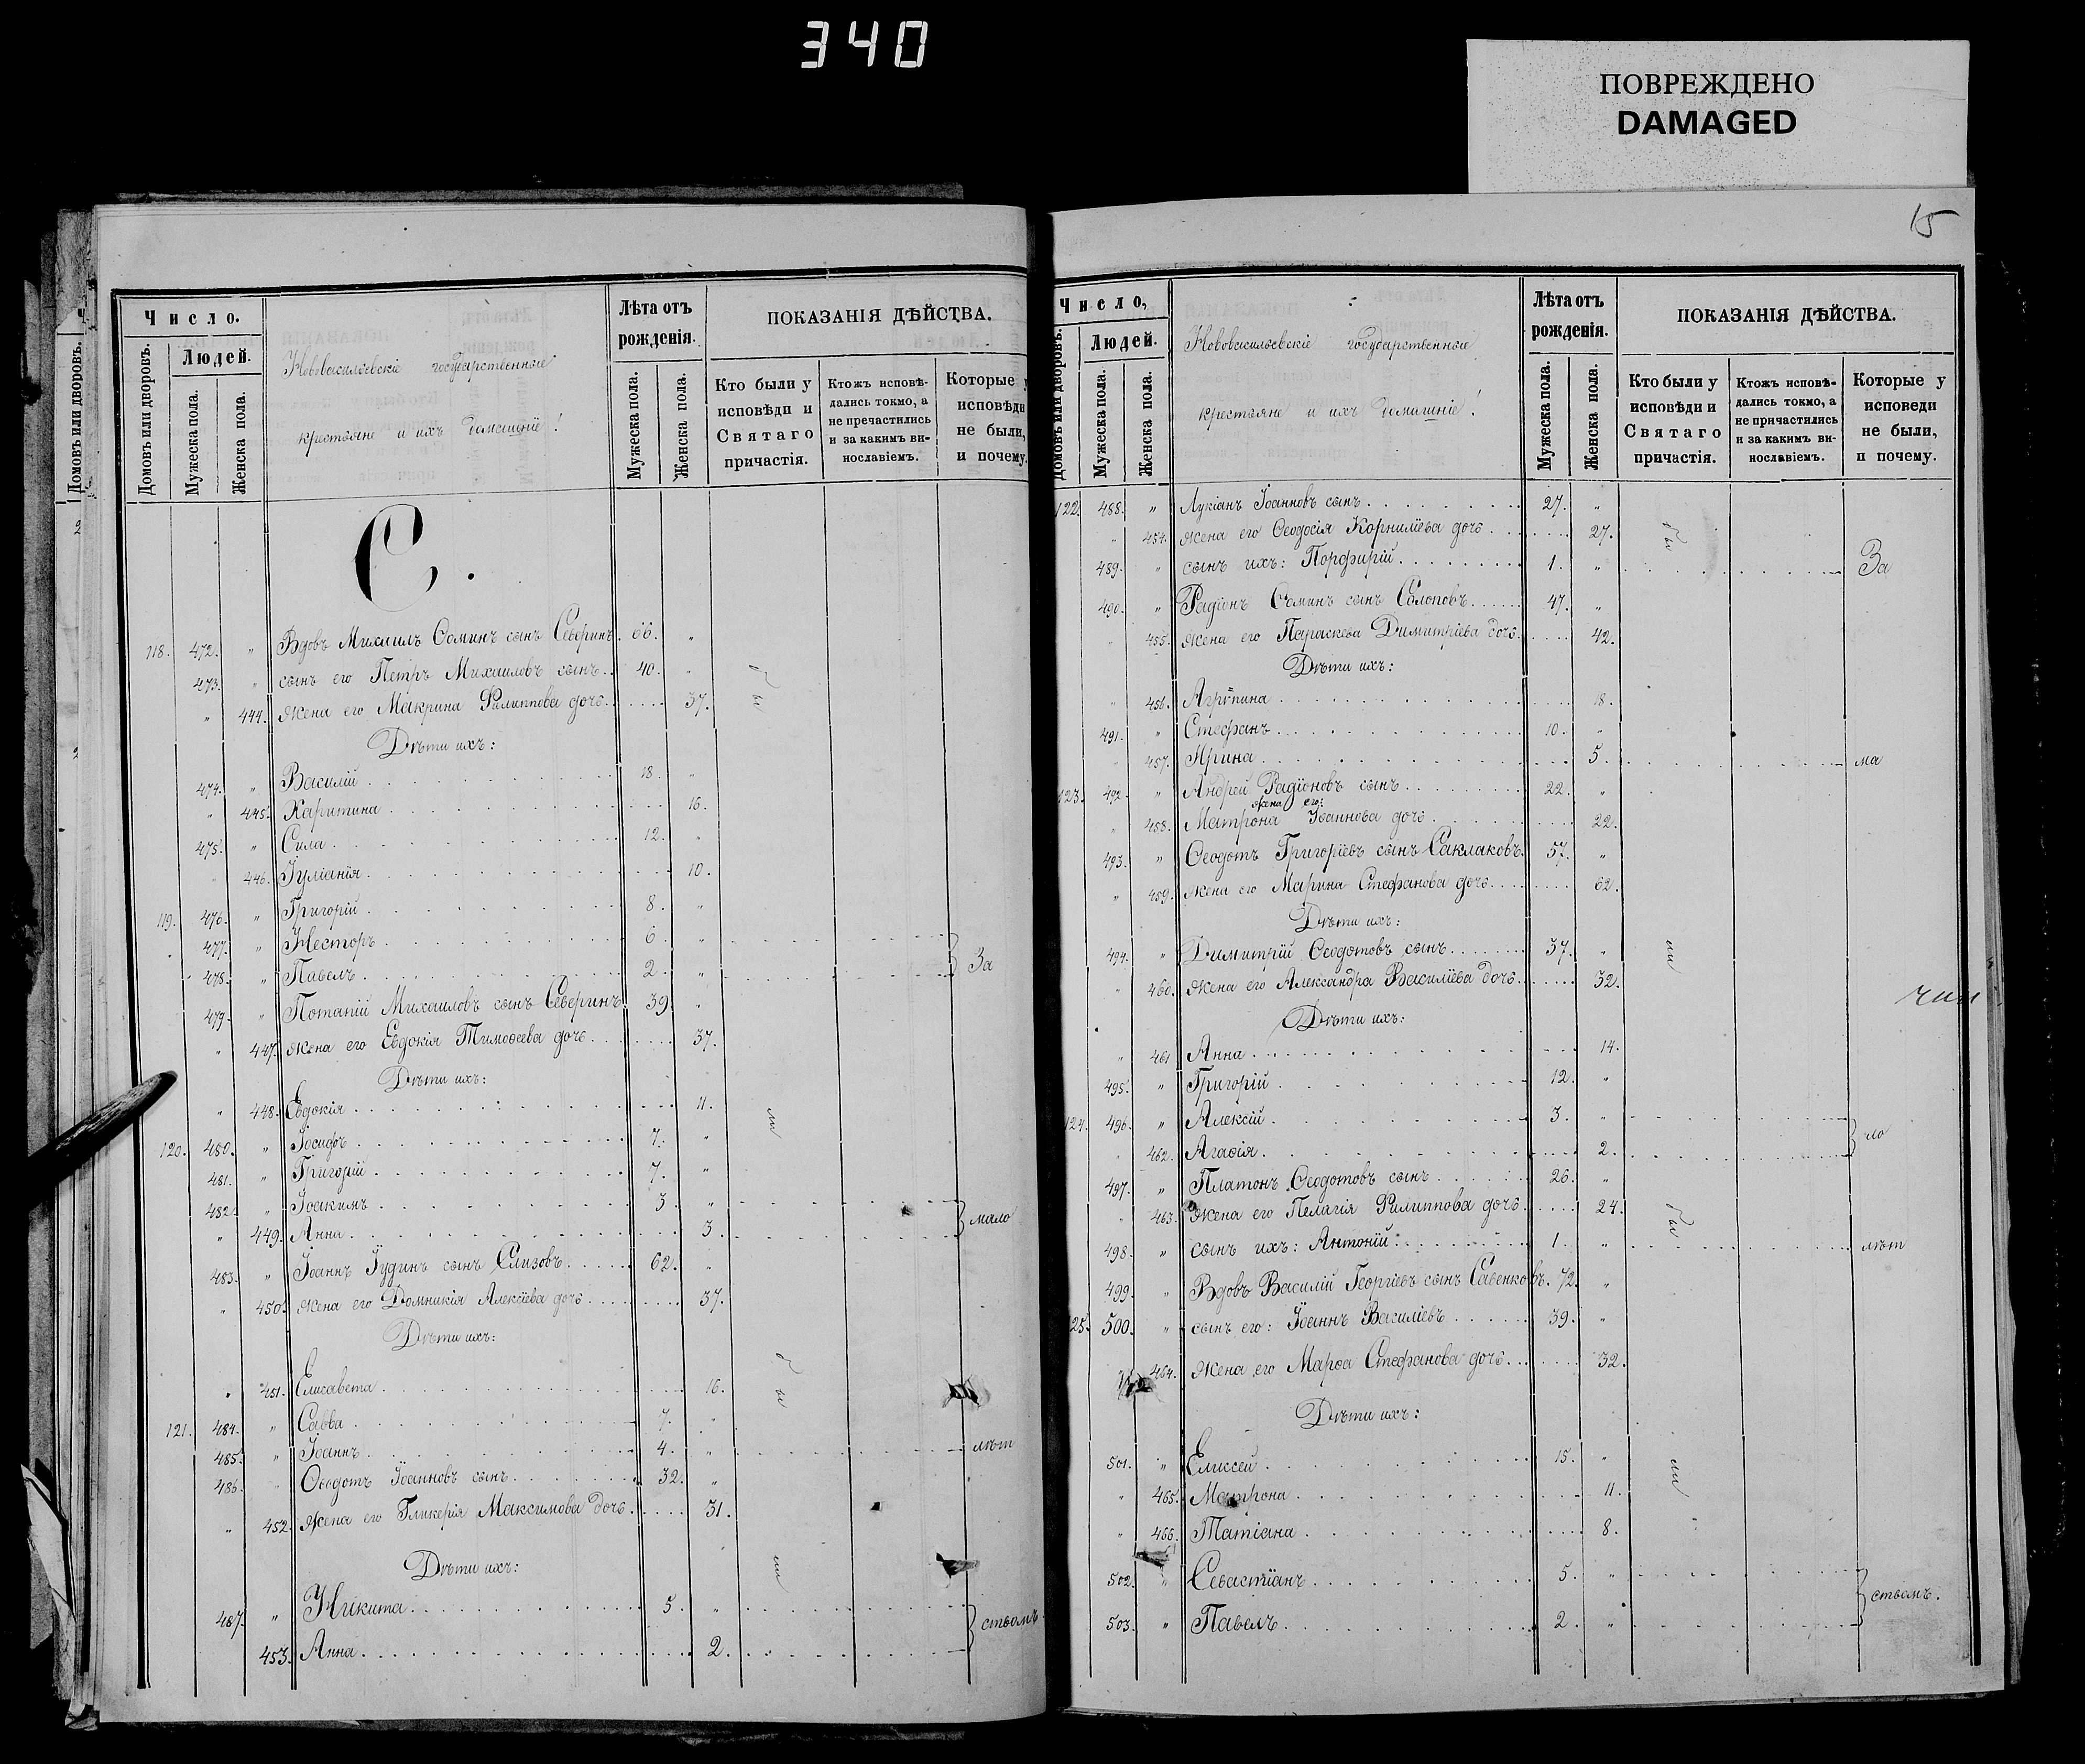 340
ПОВРЕЖДЕНО
DAMAGED
15
Число.
Людей.
Домовъ или дворовъ.
Мужеска пола.
Женска пола.
Нововасильевскіе государственные
крестьяне и ихъ домашніе!
Лѣта отъ рожденія.
Мужеска пола.
Женска пола.
ПОКАЗАНІЯ ДѢЙСТВА.
Кто были у исповѣди и Святаго причастія.
Ктожъ исповѣдались токмо, а не пречастились и за какимъ винославіемъ.
Которые у исповѣди не были, и почему.
С.
118. 472. " Вдовъ Михаилъ Ѳоминъ сынъ Северинъ. 66. "
473. " сынъ его Петръ Михаиловъ сынъ. 40. "
" 444. жена его Макрина Филиппова дочь. 37.
бы
Дѣти ихъ:
474. " Василій 18. "
" 445. Харитина 16.
475. " Сила 12. "
446. Іуліанія 10.
119. 476. " Григорій 8. "
477. " Несторъ 6. "
478. " Павелъ 2. " За
479. " Потапій Михаиловъ сынъ Северинъ. 39. "
" 447. жена его Евдокія Тимоѳеева дочь. 37.
Дѣти ихъ:
" 448. Евдокія 11.
ли
120. 480. " Іосифъ 7. "
481. " Григорій 7. "
482. " Іоакимъ 3. "
" 449. Анна 3. мало
483. " Іоаннъ Іудинъ сынъ Слизовъ. 62. "
" 450. жена его Домникія Алексіева дочь. 37.
Дѣти ихъ:
бы
" 451. Елисавета 16.
121. 484. " Савва 7. "
485. " Іоаннъ 4. " лѣт
486. Ѳеодотъ Іоанновъ сынъ. 32. "
" 452. жена его Гликерія Максимова дочь. 31.
Дѣти ихъ:
ли
487. " Никита 5. "
453. Анна 2. ствомъ.
Число,
Людей.
Домовъ или дворовъ.
Мужеска пола.
Женска пола.
Нововасильевскіе государственные
крестьяне и ихъ домашніе!
Лѣта отъ рожденія.
Мужеска пола.
Женска пола.
ПОКАЗАНІЯ ДѢЙСТВА.
Кто были у исповѣди и Святаго причастія.
Ктожъ исповѣдались токмо, а не причастились и за какимъ винославіемъ.
Которые у исповеди не были, и почему.
122. 488. " Лукіанъ Іоанновъ сынъ. 27. "
" 454. жена его Ѳеодосія Корниліева дочь. 27.
бы
489. " сынъ ихъ: Порфирій. 1. " За
490. " Радіонъ Ѳоминъ сынъ Солоповъ. 47. "
" 455. жена его Параскева Димитріева дочь. 42.
Дѣти ихъ:
" 456. Агрѵпина 18.
491. " Стефанъ 10. "
" 457. Ирина 5. ма
123. 492. " Андрей Радіоновъ сынъ 22. "
жена его:
" 458. Матрона Іоаннова дочь 22.
493. " Ѳеодотъ Григоріевъ сынъ Саклаковъ. 57. "
" 459. жена его Марина Стефанова дочь. 62.
Дѣти ихъ:
494. " Димитрій Ѳеодотовъ сынъ. 37. "
ли
" 460. жена его Александра Василіева дочь. 32.
Дѣти ихъ:
" 461 Анна 14.
495. " Григорій 12. "
124. 496. " Алексій 3. "
" 462. Агаѳія 2. ло
497. " Платонъ Ѳеодотовъ сынъ 26. "
" 463. жена его Пелагія Филиппова дочь. 24.
бы
498. " сынъ ихъ: Антоній. 1. " лѣт
499. " Вдовъ Василій Георгіевъ сынъ Савенковъ. 72. "
125. 500. " сынъ его: Іоаннъ Василіевъ 39. "
464. жена его Марѳа Стефанова дочь. 32.
Дѣти ихъ:
501. " Елиссей 15. "
ли
" 465. Матрона 11.
" 466. Татіана 8.
502. " Севастіанъ 5. "
503. " Павелъ 2. " ствомъ.